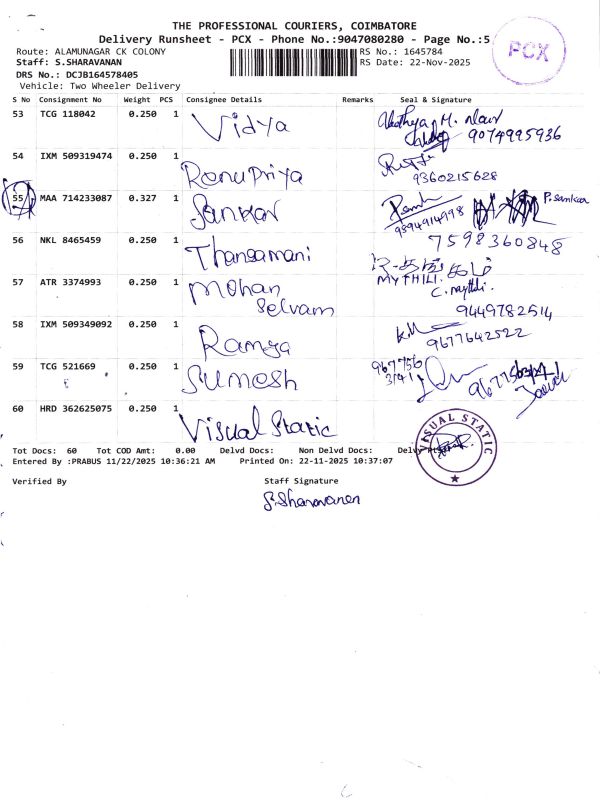 THE PROFESSIONAL COURIERS, COIMBATORE
Delivery Runsheet - PCX - Phone No.:9047080280 - Page No.:5
Route: ALAMUNAGAR CK COLONY RS No.: 1645784
Staff: S.SHARAVANAN RS Date: 22-Nov-2025
DRS No.: DCJB164578405
Vehicle: Two Wheeler Delivery
PCX
S No Consignment No Weight PCS Consignee Details Remarks Seal & Signature
53 TCG 118042 0.250 1 Vidya
9074995936
54 IXM 509319474 0.250 1 Renupriya
9360215628
55 MAA 714233087 0.327 1 Sankar P. Sankar
9394914998
56 NKL 8465459 0.250 1 Thangamani 7598360848
57 ATR 3374993 0.250 1 Mohan Selvam
MYTHILI.
C. Mythili.
9449782514
58 IXM 509349092 0.250 1 Ramya
9677642522
59 TCG 521669 0.250 1 Sumesh
967756
3141
60 HRD 362625075 0.250 1 Visual Static
VISUAL STATIC
Tot Docs: 60 Tot COD Amt: 0.00 Delvd Docs: Non Delvd Docs:
Entered By :PRABUS 11/22/2025 10:36:21 AM Printed On: 22-11-2025 10:37:07
Verified By Staff Signature
S.Sharavanan